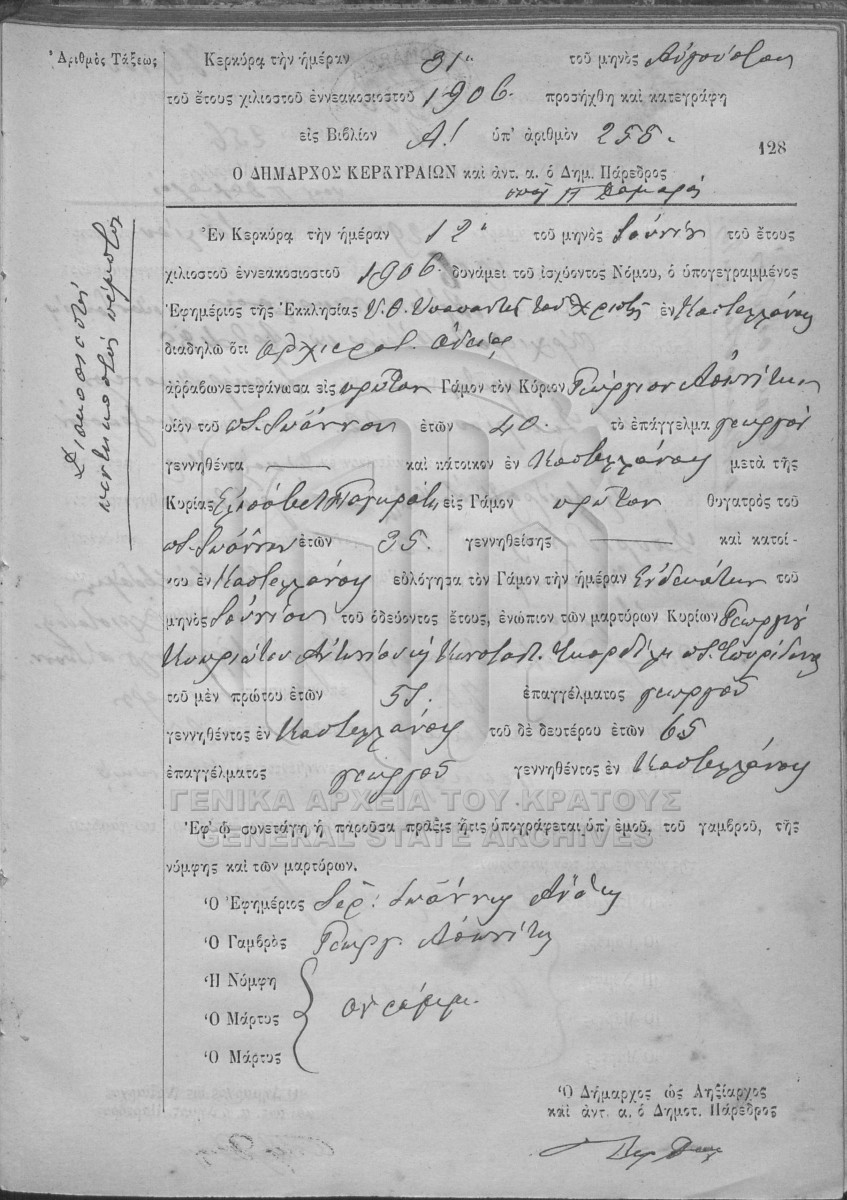 Ἀριθμὸς Τάξεως
Κερκύρα τὴν ἡμέραν 31 τοῦ μηνὸς Αὐγούστου
τοῦ ἔτους χιλιοστοῦ ἐννεακοσιοστοῦ 1906 προσήχθη καὶ κατεγράφη
εἰς Βιβλίον Α! ὑπ' ἀριθμὸν 255.
128
Ὁ ΔΗΜΑΡΧΟΣ ΚΕΡΚΥΡΑΙΩΝ καὶ ἀντ. α. ὁ Δημ. Πάρεδρος
Διακοσιοστὴ
πεντηκοστὴ πέμπτη
Ἐν Κερκύρᾳ τὴν ἡμέραν 12 τοῦ μηνὸς Ἰουνίου τοῦ ἔτους
χιλιοστοῦ ἐννεακοσιοστοῦ 1906. δυνάμει τοῦ ἰσχύοντος Νόμου, ὁ ὑπογεγραμμένος
Ἐφημέριος τῆς Ἐκκλησίας Υ. Θ. Υπαπαντῆς τοῦ Χριστοῦ ἐν Καστελλάνοις
διαδηλῶ ὅτι ἀρχιερατ. ἀδείᾳ
ἀρραβωνεστεφάνωσα εἰς πρῶτον Γάμον τὸν Κύριον Γεώργιον
υἱὸν τοῦ π. Ἰωάννου ἐτῶν 40. τὸ ἐπάγγελμα γεωργοῦ
γεννηθέντα καὶ κάτοικον ἐν Καστελλάνοις μετὰ τῆς
Κυρίας Ἐλισάβετ Παγκράτη εἰς Γάμον πρῶτον θυγατρὸς τοῦ
π. Ἰωάννου ἐτῶν 35. γεννηθείσης καὶ κατοί-
κου ἐν Καστελλάνοις εὐλόγησα τὸν Γάμον τὴν ἡμέραν Ἑνδεκάτην τοῦ
μηνὸς Ἰουνίου τοῦ ὁδεύοντος ἔτους, ἐνώπιον τῶν μαρτύρων Κυρίων Γεωργίου
Κυπριώτου Ἀντωνίου καὶ Κωνσταντ. Σκορδίλη π. Σπυρίδωνα
τοῦ μὲν πρώτου ἐτῶν 51. ἐπαγγέλματος γεωργοῦ
γεννηθέντος ἐν Καστελλάνοις τοῦ δὲ δευτέρου ἐτῶν 65
ἐπαγγέλματος γεωργοῦ γεννηθέντος ἐν Καστελλάνοις
ΓΕΝΙΚΑ ΑΡΧΕΙΑ ΤΟΥ ΚΡΑΤΟΥΣ
Ἐφ' ᾧ συνετάγη ἡ παροῦσα πρᾶξις ἥτις ὑπογράφεται ὑπ' ἐμοῦ, τοῦ γαμβροῦ, τῆς
GENERAL STATE ARCHIVES
νύμφης καὶ τῶν μαρτύρων.
Ὁ Ἐφημέριος Ἱερ. Ἰωάννης
Ὁ Γαμβρὸς Γεωργ.
Ἡ Νύμφη
Ὁ Μάρτυς ἀγράμμ.
Ὁ Μάρτυς
Ὁ Δήμαρχος ὡς Ληξίαρχος
καὶ ἀντ. α. ὁ Δημοτ. Πάρεδρος